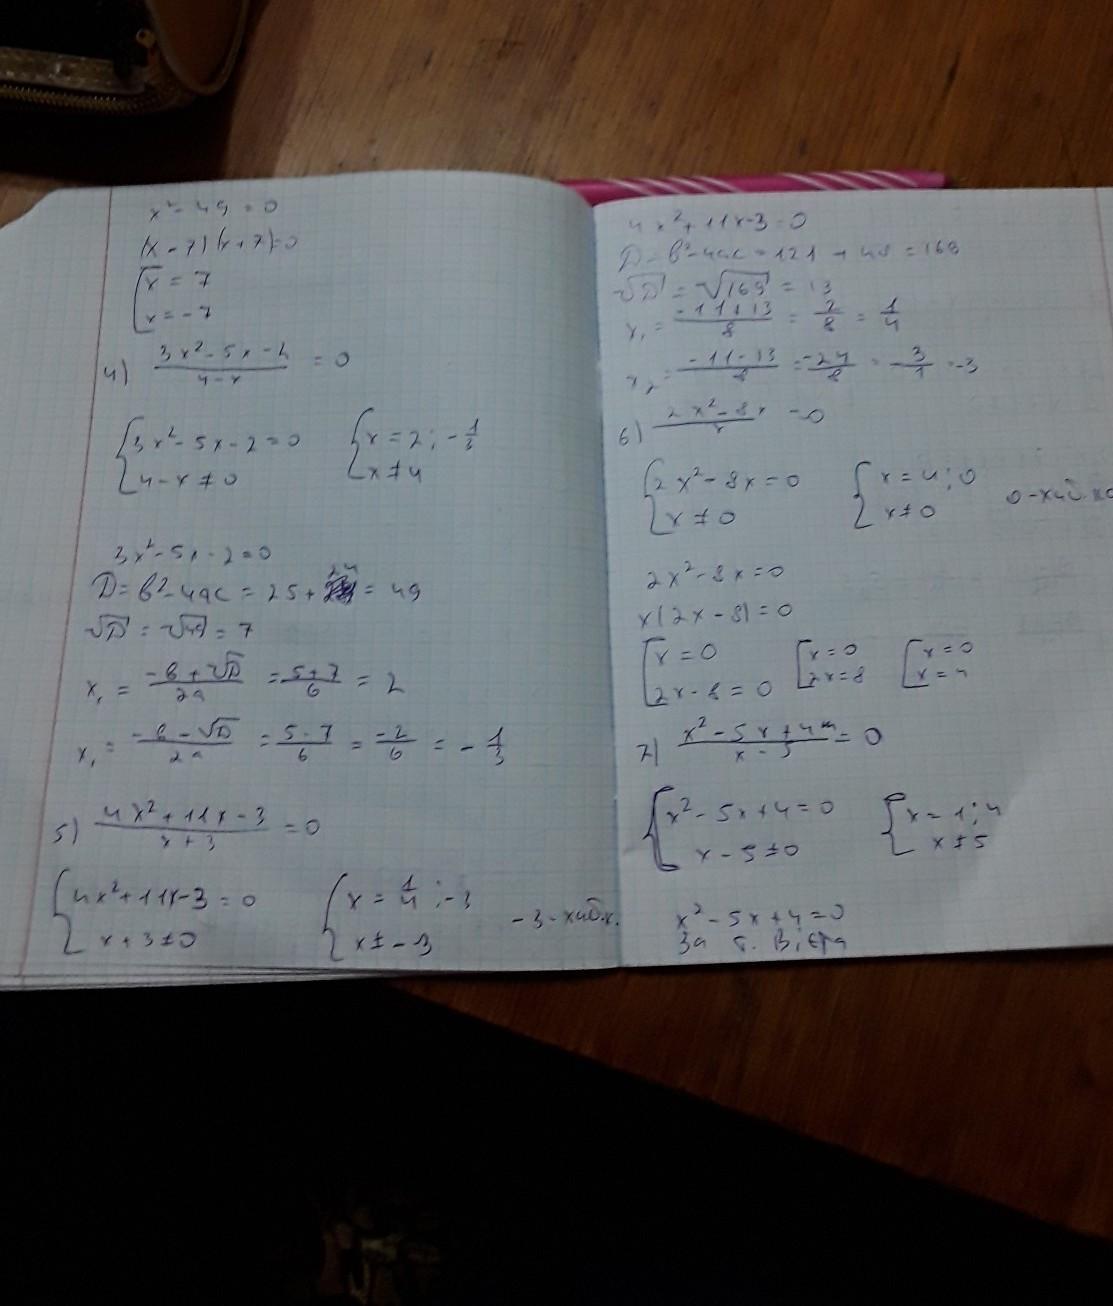 x² - 49 = 0
(x - 7)(x + 7) = 0
[x = 7
x = -7
4) (3x² - 5x - 2)/(4 - x) = 0
{3x² - 5x - 2 = 0 {x = 2; -1/3
4 - x ≠ 0 x ≠ 4
3x² - 5x - 2 = 0
D = b² - 4ac = 25 + 24 = 49
√D = √49 = 7
x₁ = (-b + √D)/2a = (5 + 7)/6 = 2
x₁ = (-b - √D)/2a = (5 - 7)/6 = -2/6 = -1/3
5) (4x² + 11x - 3)/(x + 3) = 0
{4x² + 11x - 3 = 0 {x = 1/4; -3
x + 3 ≠ 0 x ≠ -3 -3 - хиб.к.
4x² + 11x - 3 = 0
D = b² - 4ac = 121 + 48 = 169
√D = √169 = 13
x₁ = (-11 + 13)/8 = 2/8 = 1/4
x₂ = (-11 - 13)/8 = -24/8 = -3/1 = -3
6) (2x² - 8x)/x = 0
{2x² - 8x = 0 {x = 4; 0
x ≠ 0 x ≠ 0 0 - хиб.
2x² - 8x = 0
x(2x - 8) = 0
[x = 0 [x = 0 [x = 0
2x - 8 = 0 2x = 8 x = 4
7) (x² - 5x + 4)/(x - 5) = 0
{x² - 5x + 4 = 0 {x = 1; 4
x - 5 ≠ 0 x ≠ 5
x² - 5x + 4 = 0
За т. Вієта